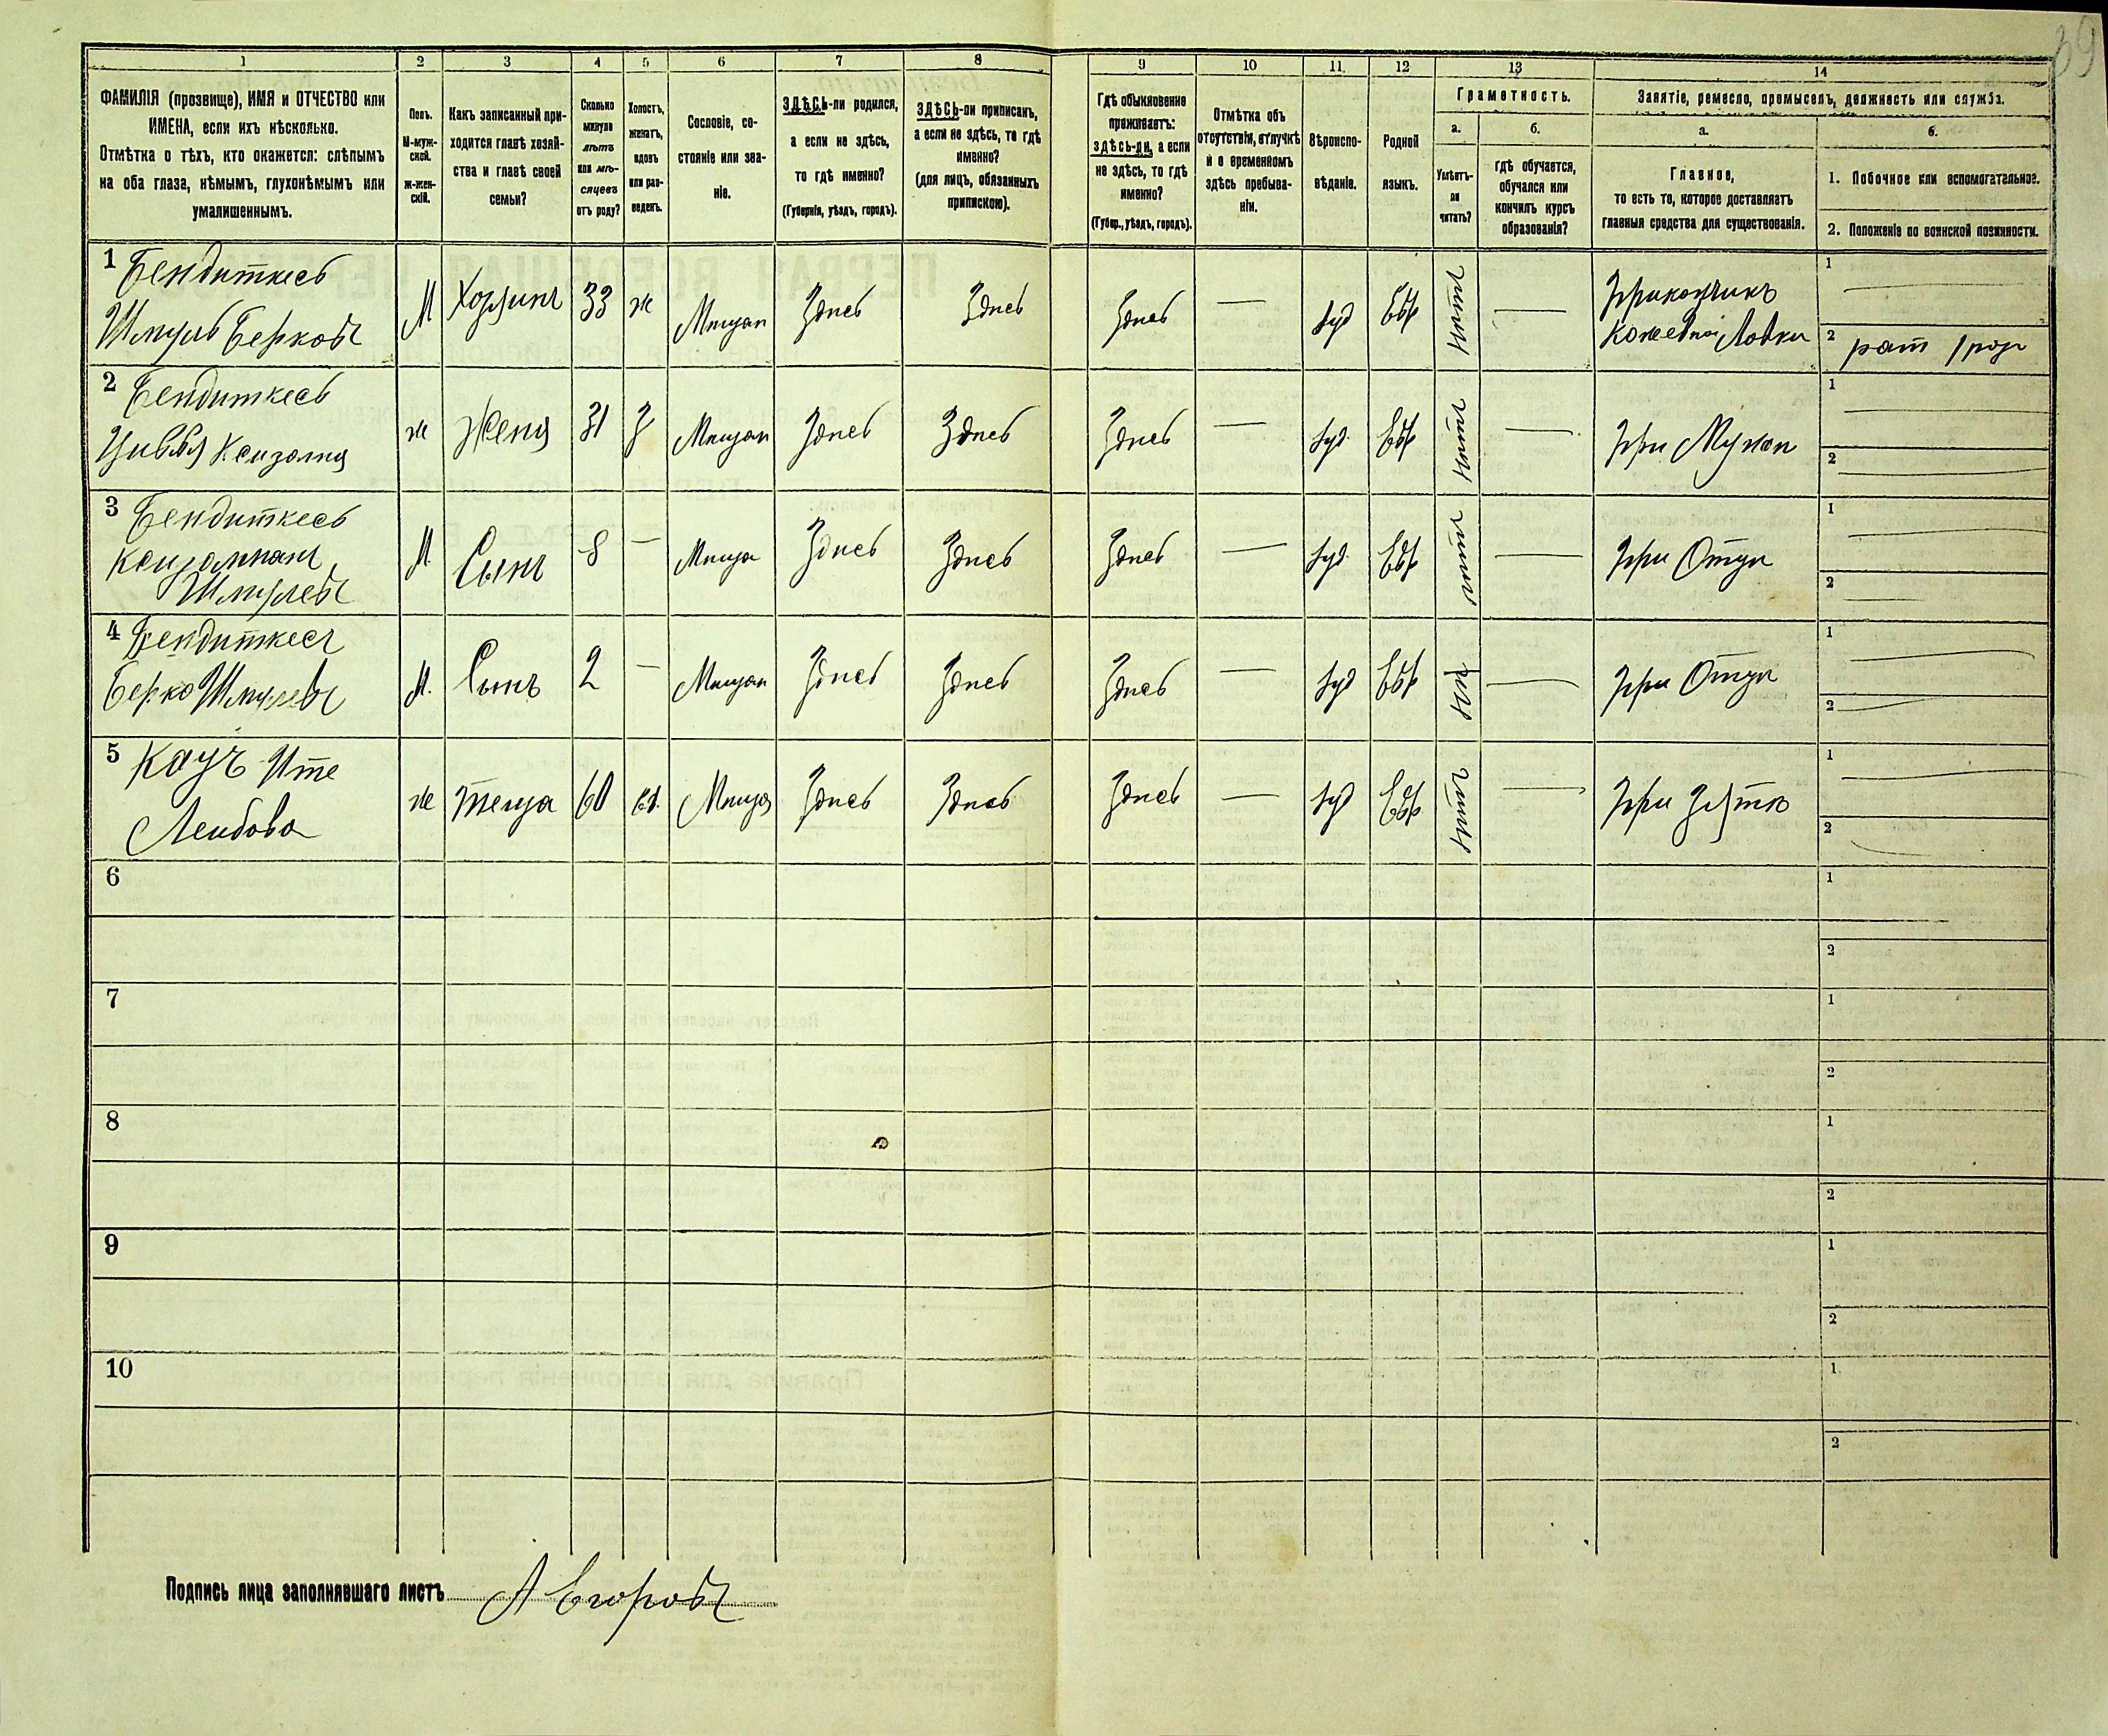 39
1 2 3 4 5 6 7 8 9 10 11 12 13 14
ФАМИЛІЯ (прозвище), ИМЯ и ОТЧЕСТВО или
ИМЕНА, если ихъ нѣсколько.
Отмѣтка о тѣхъ, кто окажется: слѣпымъ
на оба глаза, нѣмымъ, глухонѣмымъ или
умалишеннымъ.
Полъ.
М-муж-
ской.
ж-жен-
скій.
Какъ записанный при-
ходится главѣ хозяй-
ства и главѣ своей
семьи?
Сколько
минуло
лѣтъ
или мѣ-
сяцевъ
отъ роду?
Холостъ,
женатъ,
вдовъ
или раз-
веденъ.
Сословіе, со-
стояніе или зва-
ніе.
ЗДѢСЬ-ли родился,
а если не здѣсь,
то гдѣ именно?
(Губернія, уѣздъ, городъ).
ЗДѢСЬ-ли приписанъ,
а если не здѣсь, то гдѣ
именно?
(для лицъ, обязанныхъ
припискою).
Гдѣ обыкновенно
проживаетъ:
здѣсь-ли, а если
не здѣсь, то гдѣ
именно?
(Губер., уѣздъ, городъ).
Отмѣтка объ
отсутствіи, отлучкѣ
и о временномъ
здѣсь пребыва-
ніи.
Вѣроиспо-
вѣданіе.
Родной
языкъ.
Грамотность.
а.
Умѣетъ-
ли
читать?
б.
гдѣ обучается,
обучался или
кончилъ курсъ
образованія?
Занятіе, ремесло, промыселъ, должность или служба.
а.
Главное,
то есть то, которое доставляетъ
главныя средства для существованія.
б.
1. Побочное или вспомогательное.
2. Положеніе по воинской повинности.
1 Бендиткесъ
Шмуль Берковъ
М Хозяинъ 33 ж Мѣщан Здѣсь Здѣсь Здѣсь — Іуд Евр нѣтъ — Прикащикъ
Кожевной Лавки
1 —
2 рат
2 Бендиткесъ
Ж Жена 31 З Мѣщан Здѣсь Здѣсь Здѣсь — Іуд. Евр нѣтъ — При Мужѣ
1 —
2 —
3 Бендиткесъ
Шмулевъ
М. Сынъ 8 — Мѣща Здѣсь Здѣсь Здѣсь — Іуд. Евр нѣтъ — При Отцѣ
1 —
2 —
4 Бендиткесъ
Берко Шмулевъ
М. Сынъ 2 — Мѣщан Здѣсь Здѣсь Здѣсь — Іуд Евр — При Отцѣ
1 —
2 —
5 Кацъ Ите
Лейбова
ж Теща 60 вд. Мѣща Здѣсь Здѣсь Здѣсь — Іуд Евр нѣтъ — При Зятѣ
1 —
2 —
6 1
2
7 1
2
8 1
2
9 1
2
10 1
2
Подпись лица заполнявшаго листъ А Егоровъ